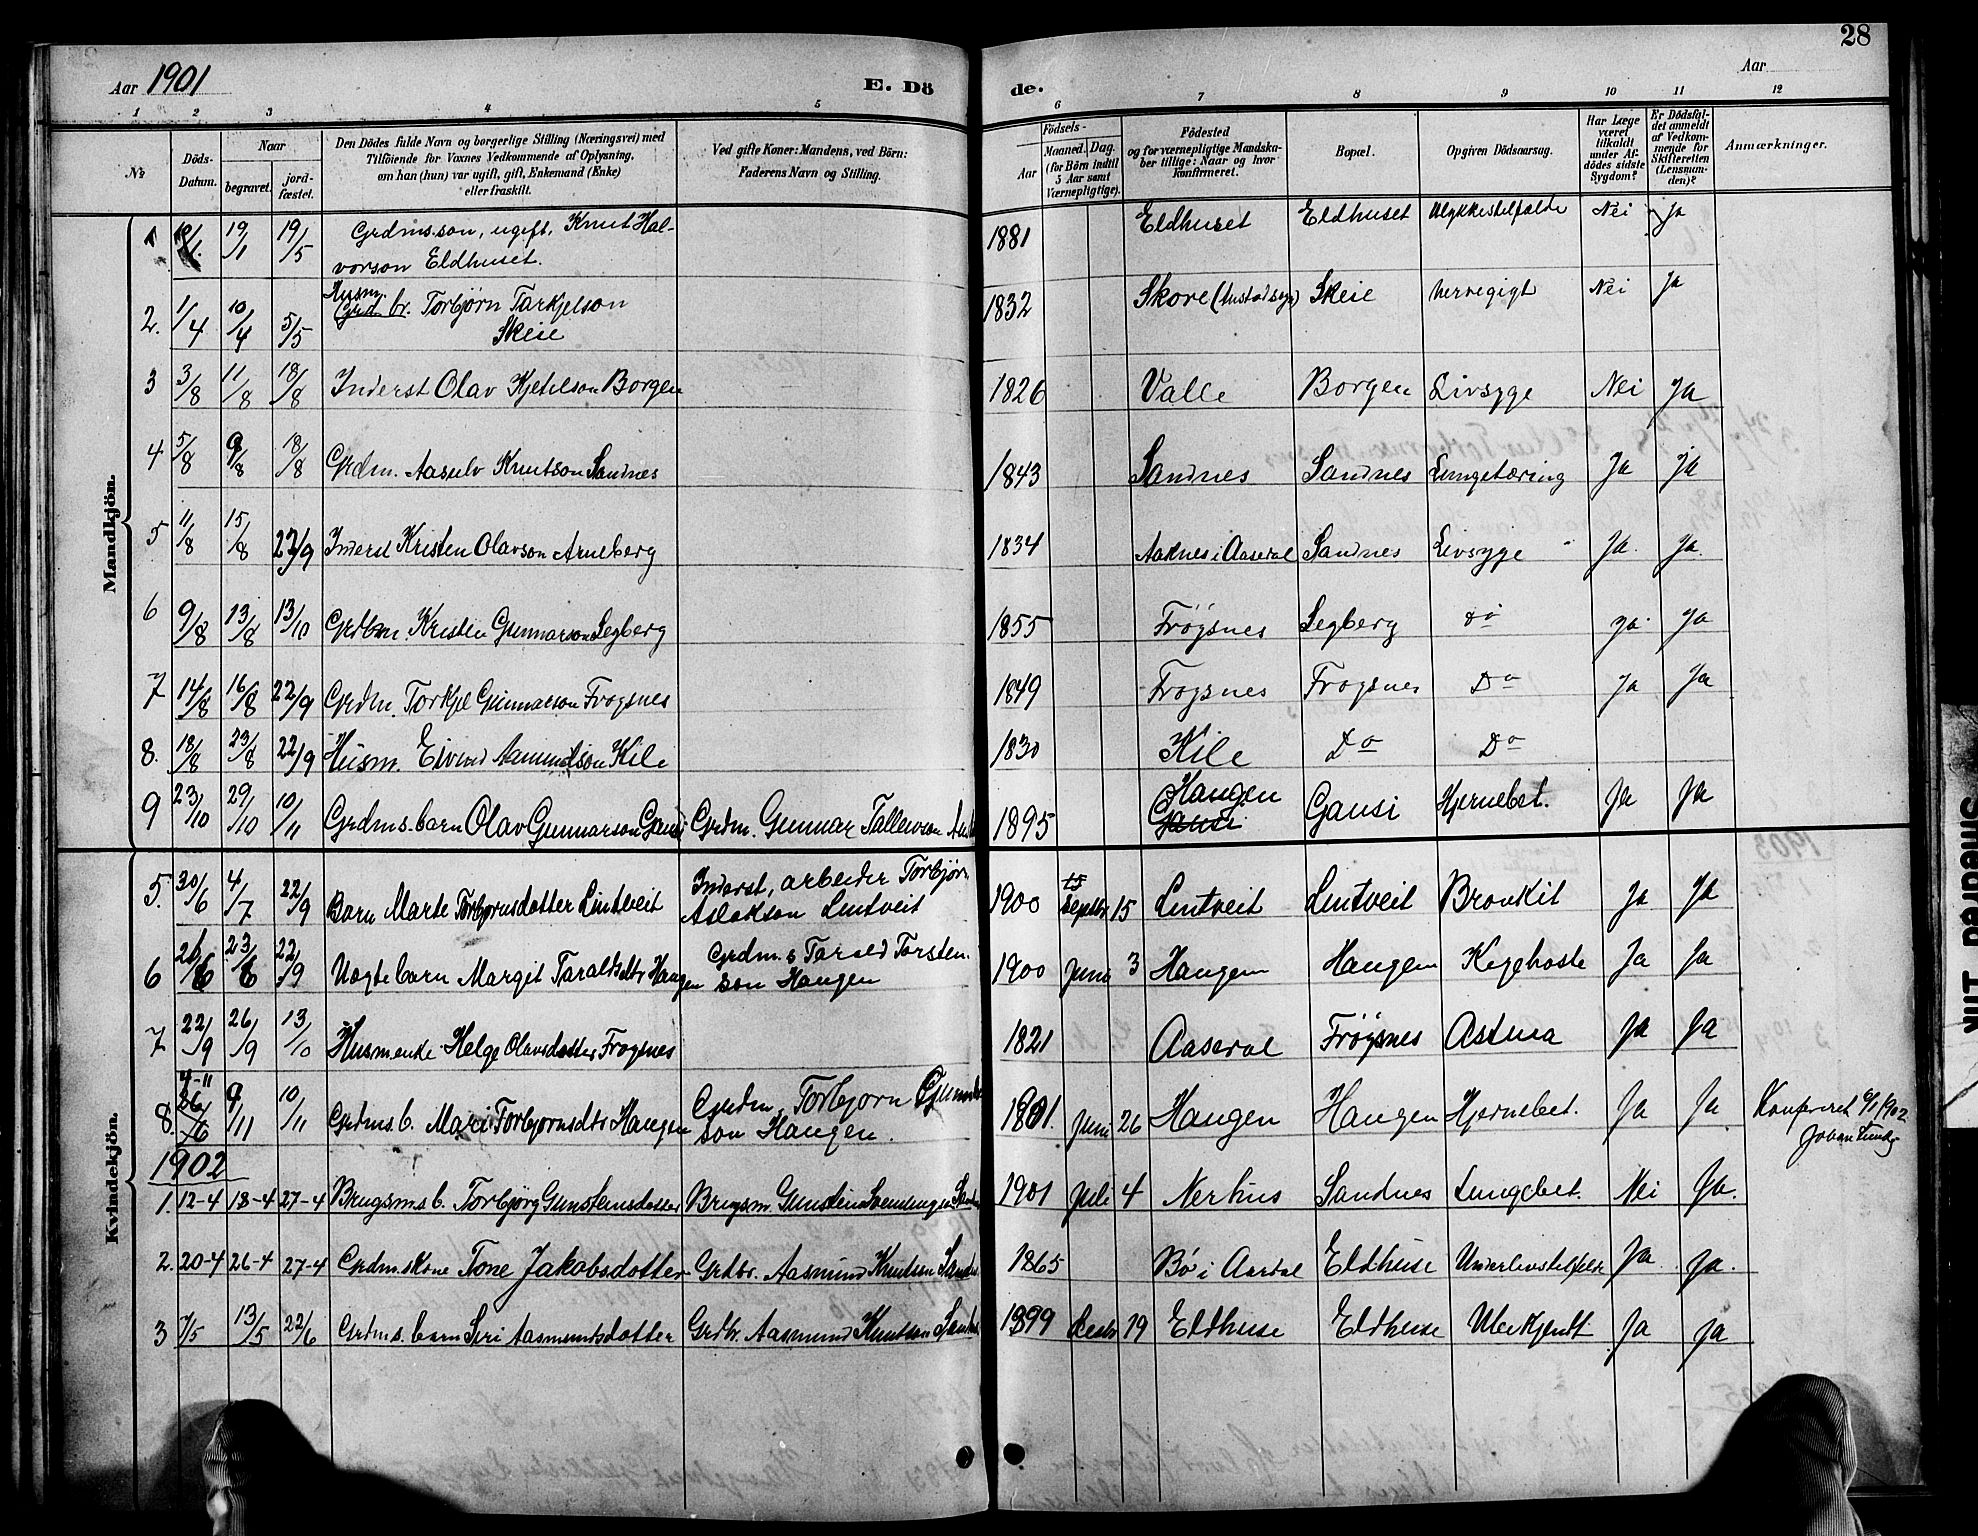 28
Aar 1901 E. Dö de. Aar
1 2 3 4 5 6 7 8 9 10 11 12
No
Döds-Datum.
Naar
begravet.
jord-fæstet.
Den Dödes fulde Navn og borgerlige Stilling (Næringsvei) med
Tilföiende for Voxnes Vedkommende af Oplysning,
om han (hun) var ugift, gift, Enkemand (Enke)
eller fraskilt.
Ved gifte Koner: Mandens, ved Börn:
Faderens Navn og Stilling.
Födsels-
Aar
Maaned. Dag.
(for Börn indtil
5 Aar samt
Værnepligtige).
Födested
og for værnepligtige Mandska-
ber tillige: Naar og hvor
konfirmeret.
Bopæl.
Opgiven Dödsaarsag.
Har Læge
været
tilkaldt
under Af-
dödes sidste
Sygdom?
Er Dödsfal-
det anmeldt
af Vedkom-
mende for
Skifteretten
(Lensman-
den)?
Anmærkninger.
Mandkjön.
1 19/1 19/5 Grdms.son, ugift, Knut Hal-
vorson Eldhuset. 1881 Eldhuset Eldhuset Ulykkestilfælde Nei Ja
2. 1/4 10/4 5/5 Husm.
Grd. br. Torbjørn Tarkjelson
Skeie 1832 Skore Skeie Nervegigt Nei Ja
3 3/8 11/8 18/8 Inderst Olav Kjetilson Borgen 1826 Valle Borgen Livsyge Nei Ja
4 5/8 9/8 18/8 Grdm. Aasulv Knutson Sandnes 1843 Sandnes Sandnes Lungetæring Ja Ja
5 11/8 15/8 22/9 Inderst Kristen Olavson Arneberg 1834 Aaknes i Aaseral Sandnes Livsyge Ja. Ja.
6 9/8 13/8 13/10 Grdbm. Kristen Gunnarson Legberg 1855 Frøgsnes Legberg do Ja. Ja
7 14/8 16/8 22/9 Grdm. Torkjel Gunnarson Frøgsnes 1849 Frøgsnes Frøgsnes Do Ja Ja
8. 18/8 23/8 22/9 Husm. Eivind Aamundson Kile 1830 Kile Do Do
9 23/10 29/10 10/11 Grdms. barn Olav Gunnarson Gausi Grdm. Gunnar Tallevson 1895 Haugen
Gausi Gausi Hjernebet. Ja Ja
Kvindekjön.
5. 30/6 4/7 22/9 Barn Marte Torbjørnsdotter Lintveit Inderst, arbeider Torbjørn
Aslakson Lintveit 1900 15
Septbr 15 Lintveit Lintveit Bronkit Ja Ja
6 20/6 23/6 22/9 Uegte barn Margit Taraldsdtr Haugen Grdm.s Tarald Torsten-
son Haugen 1900 Juni 3 Haugem Haugem Kighoste Ja Ja
7 22/9 26/9 13/10 Husmenke Helge Olavsdotter Frøgsnes 1821 Aaseral Frøgsnes Astma Ja Ja
4-11
8. 26/6 9/11 10/11 Grdms. b. Mari Torbjørnsdtr Haugen Grdm. Torbjørn
son Haugen. 1901. Juni 26 Haugen Haugen Hjernebet. Ja Ja Konfereret 6/1 1902
Johan
1902
1. 12-4 18-4 27-4 Brugsms b. Torbjørg Gunsteinsdotter Brugsm. Gunstein 1901 Juli 4 Nerhus Sandnes Lungebet. Nei Ja.
2. 20-4 26-4 27-4 Grdm.skone Tone Jakobsdotter Grdbr. Aasmund Knutson 1865 Bø i Aardal Eldhuse Underlivstilfælde Ja. Ja.
3 7/5 13/5 22/6 Grdms. barn Siri Aasmundsdotter Grdbr. Aasmund Knutson 1899 Desbr 19 Eldhuse Eldhuse Ubekjendt Ja Ja